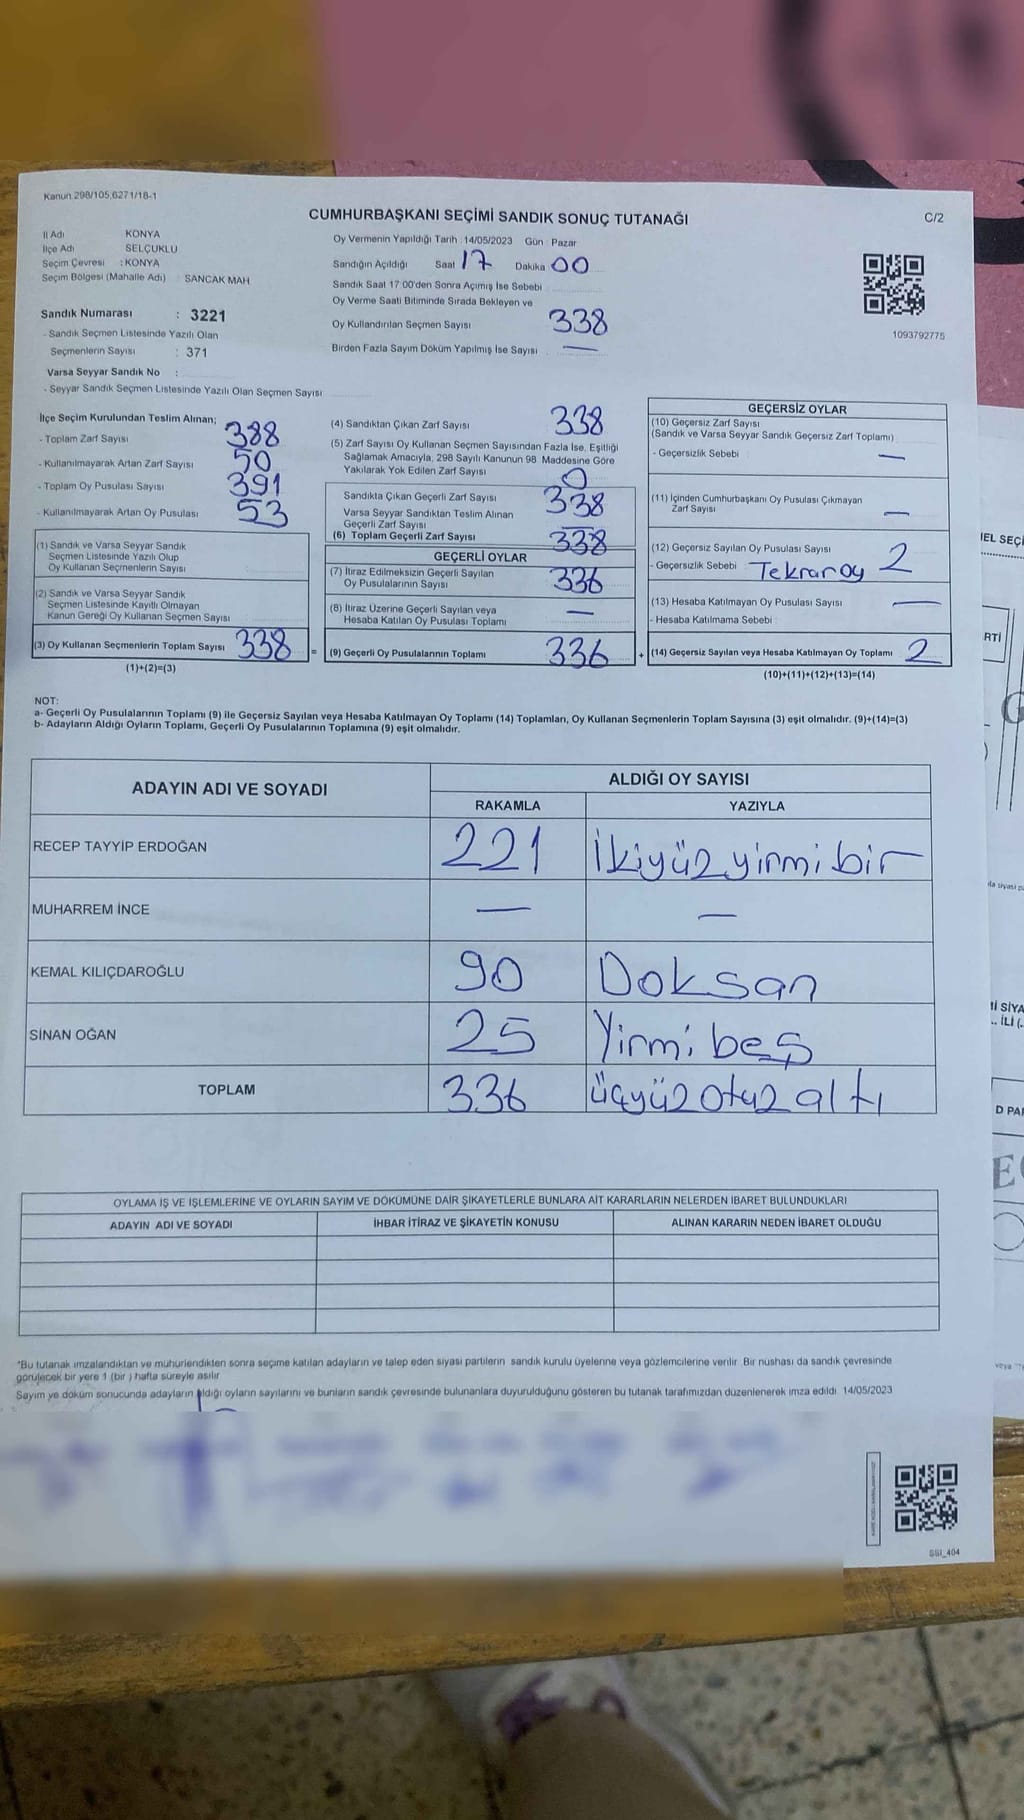 Kanun 298/105,6271/18-1
CUMHURBAŞKANI SEÇİMİ SANDIK SONUÇ TUTANAĞI
C/2
İl Adı KONYA
İlçe Adı SELÇUKLU
Seçim Çevresi : KONYA
Seçim Bölgesi (Mahalle Adı) : SANCAK MAH
Sandık Numarası : 3221
- Sandık Seçmen Listesinde Yazılı Olan
Seçmenlerin Sayısı : 371
Varsa Seyyar Sandık No :
- Seyyar Sandık Seçmen Listesinde Yazılı Olan Seçmen Sayısı
Oy Vermenin Yapıldığı Tarih :14/05/2023 Gün : Pazar
Sandığın Açıldığı Saat 17 Dakika 00
Sandık Saat 17:00'den Sonra Açımış İse Sebebi
Oy Verme Saati Bitiminde Sırada Bekleyen ve
Oy Kullandırılan Seçmen Sayısı 338
Birden Fazla Sayım Döküm Yapılmış İse Sayısı —
1093792775
İlçe Seçim Kurulundan Teslim Alınan;
- Toplam Zarf Sayısı 388
- Kullanılmayarak Artan Zarf Sayısı 50
- Toplam Oy Pusulası Sayısı 391
- Kullanılmayarak Artan Oy Pusulası 53
(1) Sandık ve Varsa Seyyar Sandık
Seçmen Listesinde Yazılı Olup
Oy Kullanan Seçmenlerin Sayısı
(2) Sandık ve Varsa Seyyar Sandık
Seçmen Listesinde Kayıtlı Olmayan
Kanun Gereği Oy Kullanan Seçmen Sayısı
(3) Oy Kullanan Seçmenlerin Toplam Sayısı 338 =
(1)+(2)=(3)
(4) Sandıktan Çıkan Zarf Sayısı 338
(5) Zarf Sayısı Oy Kullanan Seçmen Sayısından Fazla İse, Eşitliği
Sağlamak Amacıyla, 298 Sayılı Kanunun 98. Maddesine Göre
Yakılarak Yok Edilen Zarf Sayısı 0
Sandıkta Çıkan Geçerli Zarf Sayısı 338
Varsa Seyyar Sandıktan Teslim Alınan
Geçerli Zarf Sayısı —
(6) Toplam Geçerli Zarf Sayısı 338
GEÇERLİ OYLAR
(7) İtiraz Edilmeksizin Geçerli Sayılan
Oy Pusulalarının Sayısı 336
(8) İtiraz Üzerine Geçerli Sayılan veya
Hesaba Katılan Oy Pusulası Toplamı —
(9) Geçerli Oy Pusulalarının Toplamı 336 +
GEÇERSİZ OYLAR
(10) Geçersiz Zarf Sayısı
(Sandık ve Varsa Seyyar Sandık Geçersiz Zarf Toplamı)
- Geçersizlik Sebebi —
(11) İçinden Cumhurbaşkanı Oy Pusulası Çıkmayan
Zarf Sayısı —
(12) Geçersiz Sayılan Oy Pusulası Sayısı 2
- Geçersizlik Sebebi Tekrar oy
(13) Hesaba Katılmayan Oy Pusulası Sayısı —
- Hesaba Katılmama Sebebi
(14) Geçersiz Sayılan veya Hesaba Katılmayan Oy Toplamı 2
(10)+(11)+(12)+(13)=(14)
NOT:
a- Geçerli Oy Pusulalarının Toplamı (9) ile Geçersiz Sayılan veya Hesaba Katılmayan Oy Toplamı (14) Toplamları, Oy Kullanan Seçmenlerin Toplam Sayısına (3) eşit olmalıdır. (9)+(14)=(3)
b- Adayların Aldığı Oyların Toplamı, Geçerli Oy Pusulalarının Toplamına (9) eşit olmalıdır.
ADAYIN ADI VE SOYADI
ALDIĞI OY SAYISI
RAKAMLA YAZIYLA
RECEP TAYYİP ERDOĞAN 221 İkiyüzyirmibir
MUHARREM İNCE — —
KEMAL KILIÇDAROĞLU 90 Doksan
SİNAN OĞAN 25 Yirmi beş
TOPLAM 336 üçyüz otuz altı
OYLAMA İŞ VE İŞLEMLERİNE VE OYLARIN SAYIM VE DÖKÜMÜNE DAİR ŞİKAYETLERLE BUNLARA AİT KARARLARIN NELERDEN İBARET BULUNDUKLARI
ADAYIN ADI VE SOYADI İHBAR İTİRAZ VE ŞİKAYETİN KONUSU ALINAN KARARIN NEDEN İBARET OLDUĞU
*Bu tutanak imzalandıktan ve mühürlendikten sonra seçime katılan adayların ve talep eden siyasi partilerin sandık kurulu üyelerine veya gözlemcilerine verilir. Bir nüshası da sandık çevresinde
görülecek bir yere 1 (bir ) hafta süreyle asılır
Sayım ve döküm sonucunda adayların aldığı oyların sayılarını ve bunların sandık çevresinde bulunanlara duyurulduğunu gösteren bu tutanak tarafımızdan düzenlenerek imza edildi. 14/05/2023
SSI_404